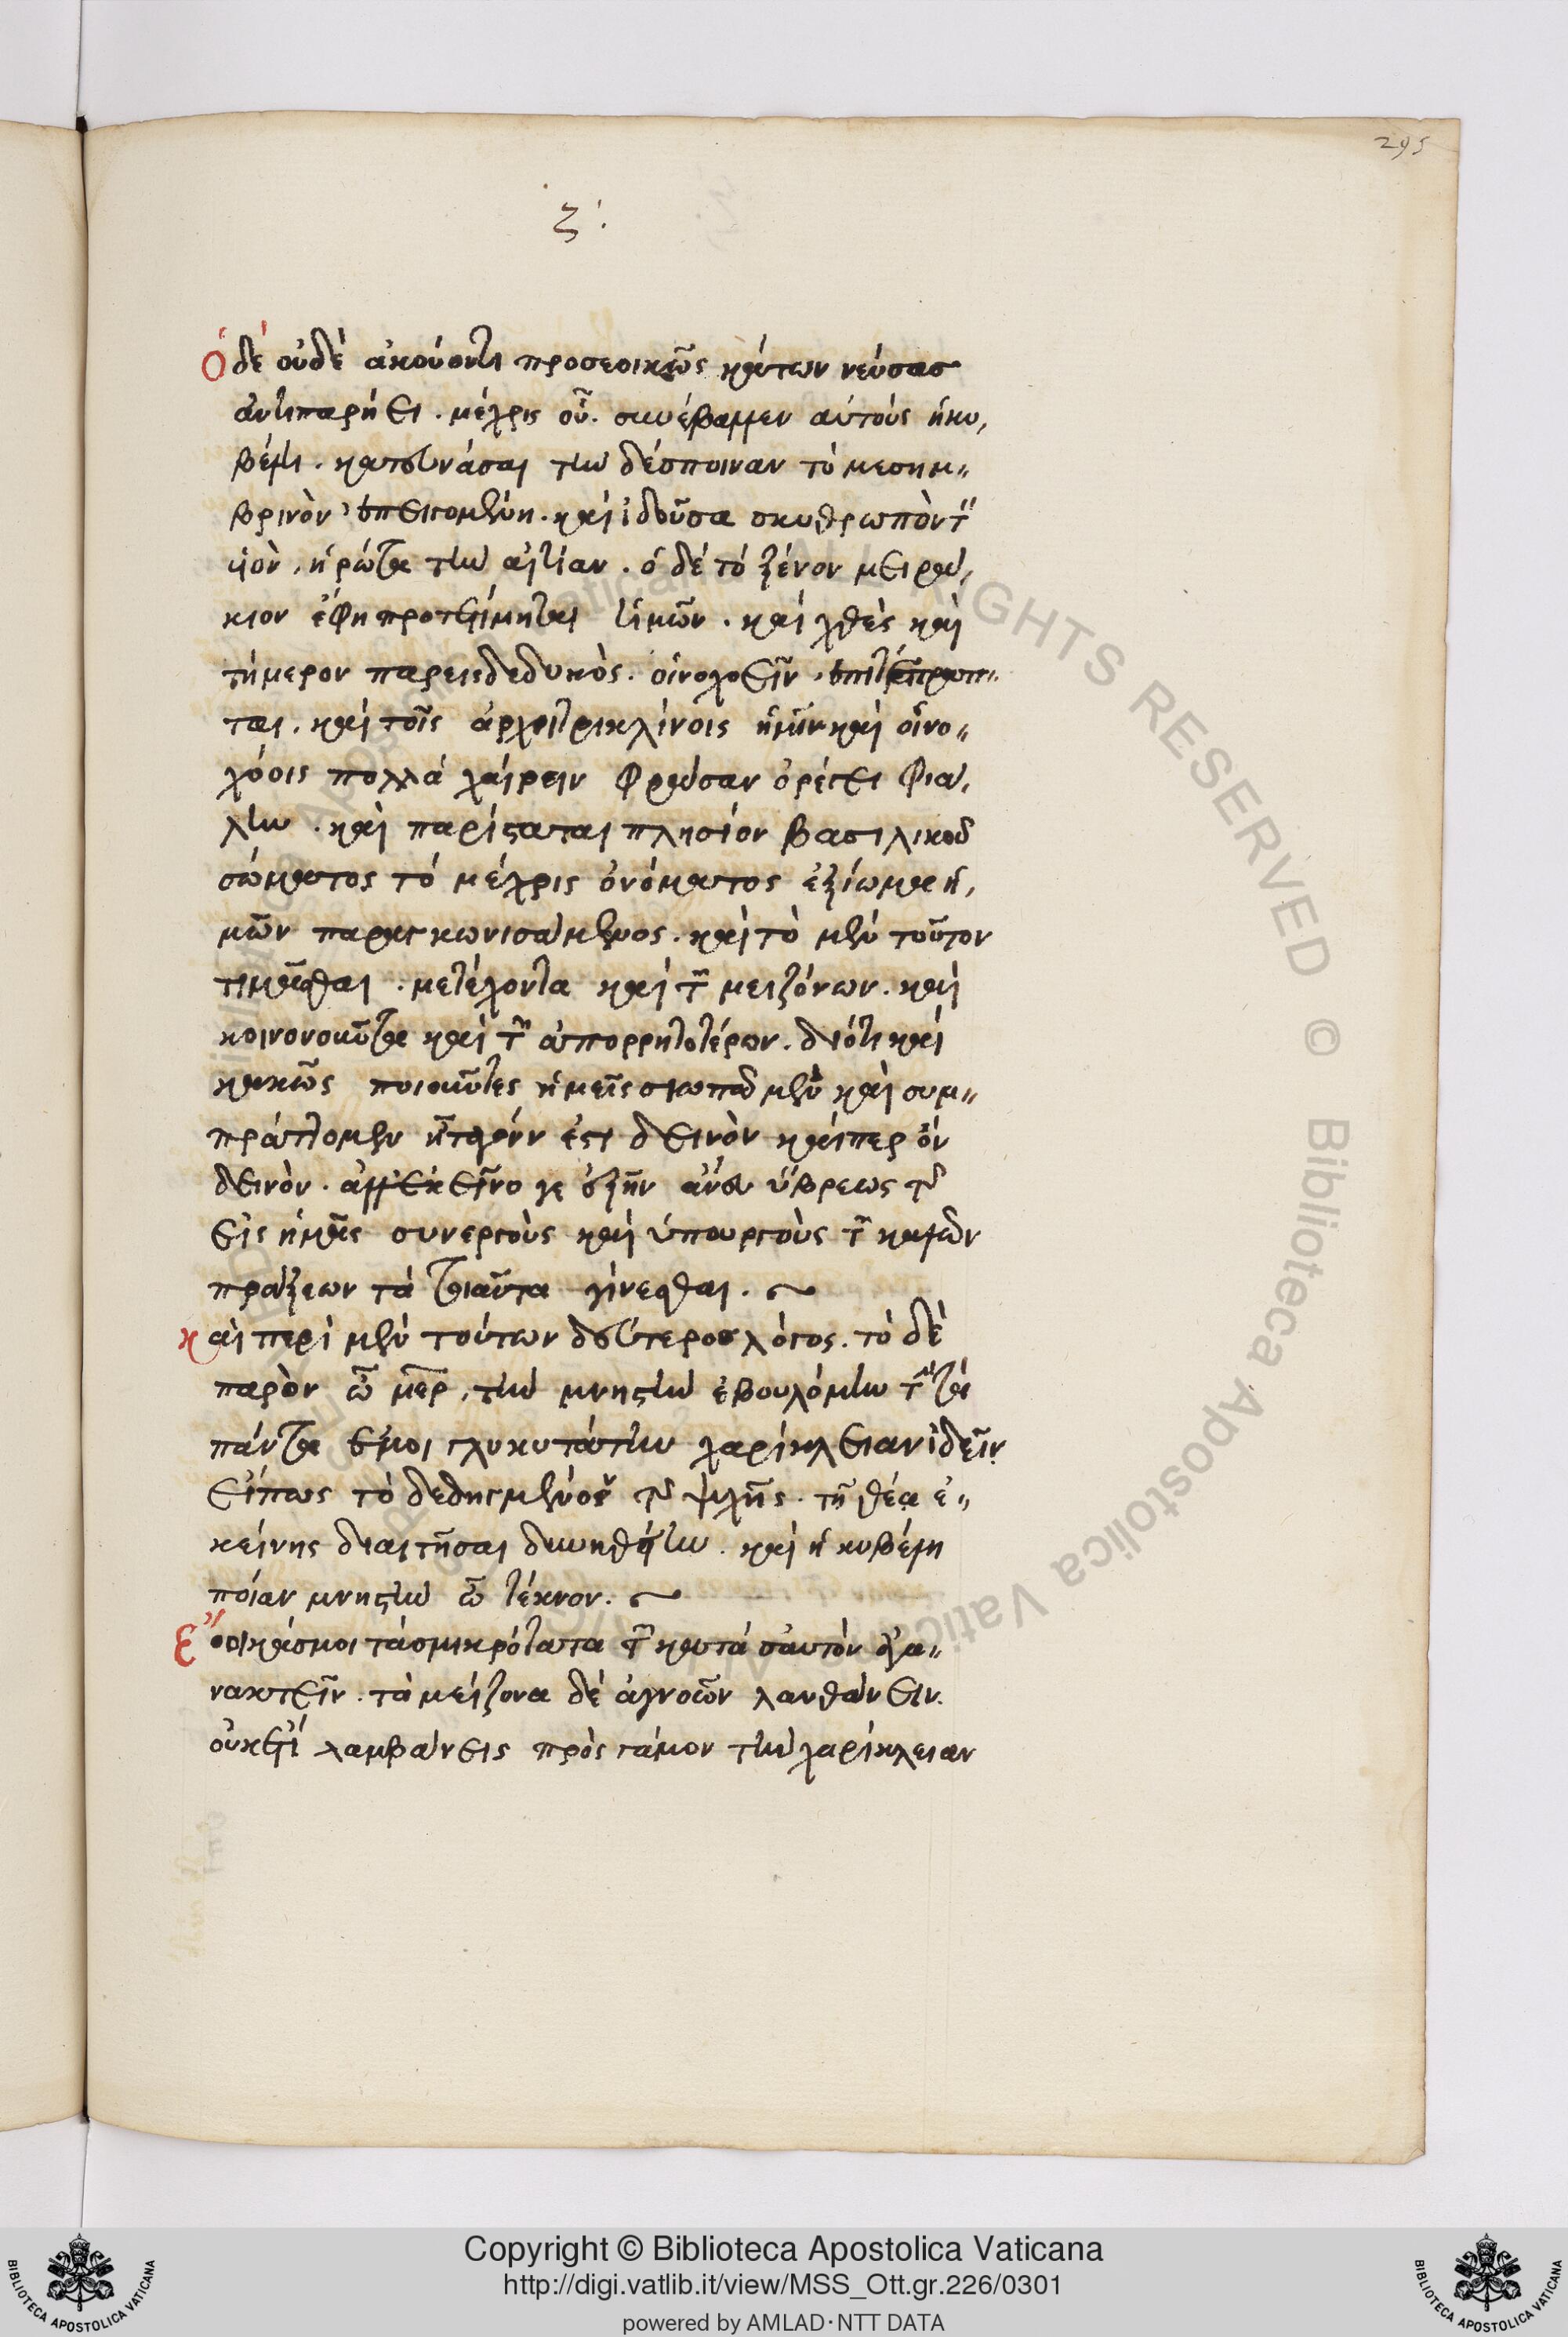 295
ζ΄.
Ὁ δὲ οὐδὲ ἀκούοντι προσεοικὼς κάτων νεύσας
ἀντιπαρῄει. μέχρις οὗ. συνέβαλλεν αὐτοὺς ἡ κυ,
βέλη. κατευνάσαι τὴν δέσποιναν τὸ μεσημ„
βρινὸν ἐπειγομένη. καὶ ἰδοῦσα σκυθρωπὸν τὸν
υἱὸν, ἠρώτα τὴν αἰτίαν. ὁ δὲ τὸ ξένον μειρά,
κιον ἔφη προτετίμηται ἡμῶν. καὶ χθὲς καὶ
τήμερον παρεισδεδυκὸς. οἰνοχοεῖν ἐπιτέτραπ„
ται. καὶ τοῖς ἀρχιτρικλίνοις ἡμῖν καὶ οἰνο„
χόοις πολλὰ χαίρειν φράσαν ὀρέγει φιά,
λην. καὶ παρίσταται πλησίον βασιλικοῦ
σώματος τὸ μέχρις ὀνόματος ἀξίωμα ἡ,
μῶν παραγκωνισάμενος. καὶ τὸ μὲν τοῦτον
τιμᾶσθαι. μετέχοντα καὶ τῶν μειζόνων. καὶ
κοινονοῦντα καὶ τῶν ἀπορρητοτέρων. διότι καὶ
κακῶς ποιοῦντες ἡμεῖς σιωπῶμεν καὶ συμ„
πράττομεν ἧττον ἐστι δεινὸν καίπερ ὂν
δεινὸν. ἀλλ' ἐκεῖνο γε ἐξῆν ἄνευ ὕβρεως τῆς
εἰς ἡμᾶς συνεργοὺς καὶ ὑπουργοὺς τῶν καλῶν
πράξεων τὰ τοιαῦτα γίνεσθαι.
καὶ περὶ μὲν τούτων δεύτερος λόγος. τὸ δὲ
παρὸν ὦ μῆτερ, τὴν μνηστὴν ἐβουλόμην τὴν τὰ
πάντα ἐμοι γλυκυτάτην χαρίκλειαν ἰδεῖν
εἴπως τὸ δεδηγμένον τῆς ψυχῆς. τῇ θέᾳ ἐ„
κείνης διαιτῆσαι δυνηθείην. καὶ ἡ κυβέλη
ποίαν μνηστὴν ὦ τέκνον.
ἔοικάς μοι τὰ σμικρότατα τῶν κατὰ σαυτὸν ἀγα„
νακτεῖν. τὰ μείζονα δὲ ἀγνοῶν λανθάνειν.
οὐκέτι λαμβάνεις πρὸς γάμον τὴν χαρίκλειαν
ALL RIGHTS RESERVED © Biblioteca Apostolica Vaticana
BIBLIOTECA APOSTOLICA VATICANA
Copyright © Biblioteca Apostolica Vaticana
http://digi.vatlib.it/view/MSS_Ott.gr.226/0301
powered by AMLAD·NTT DATA
BIBLIOTECA APOSTOLICA VATICANA